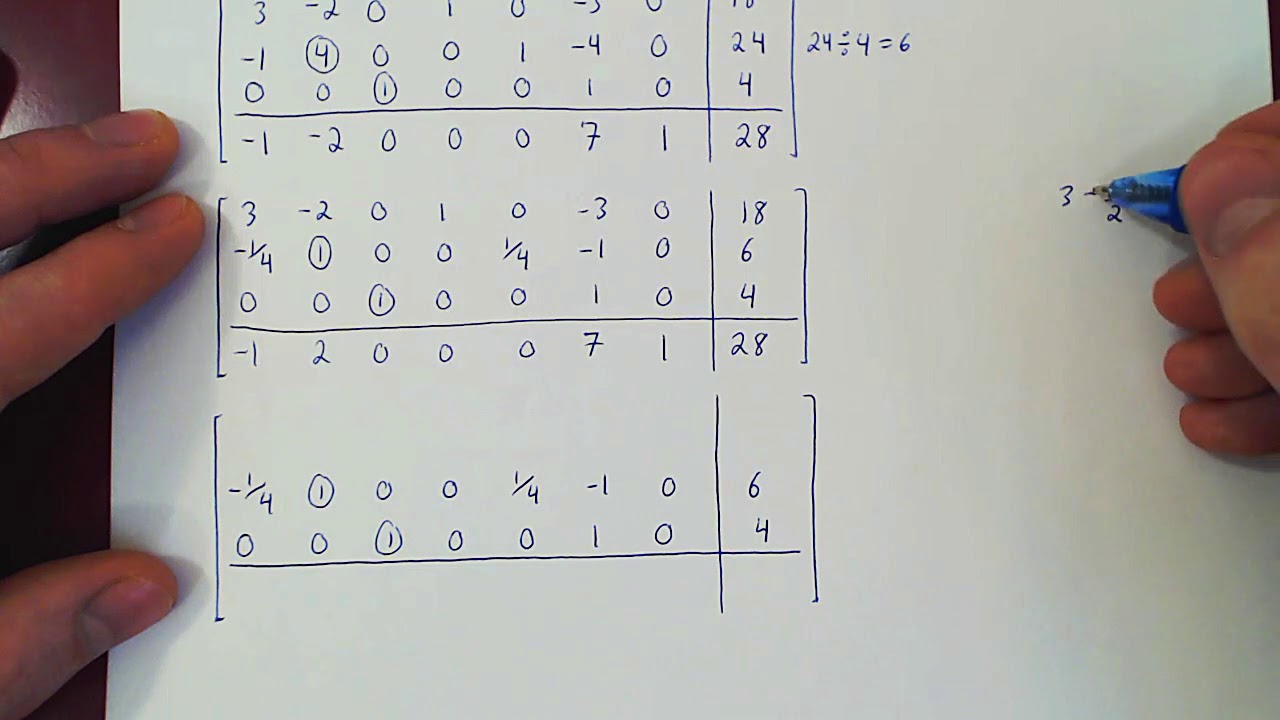 3 -2 0 1 0 -3 0 18
-1 4 0 0 1 -4 0 24 24÷4=6
0 0 1 0 0 1 0 4
-1 -2 0 0 0 7 1 28
3 -2 0 1 0 -3 0 18
-1/4 1 0 0 1/4 -1 0 6
0 0 1 0 0 1 0 4
-1 2 0 0 0 7 1 28
-1/4 1 0 0 1/4 -1 0 6
0 0 1 0 0 1 0 4
3 - 2